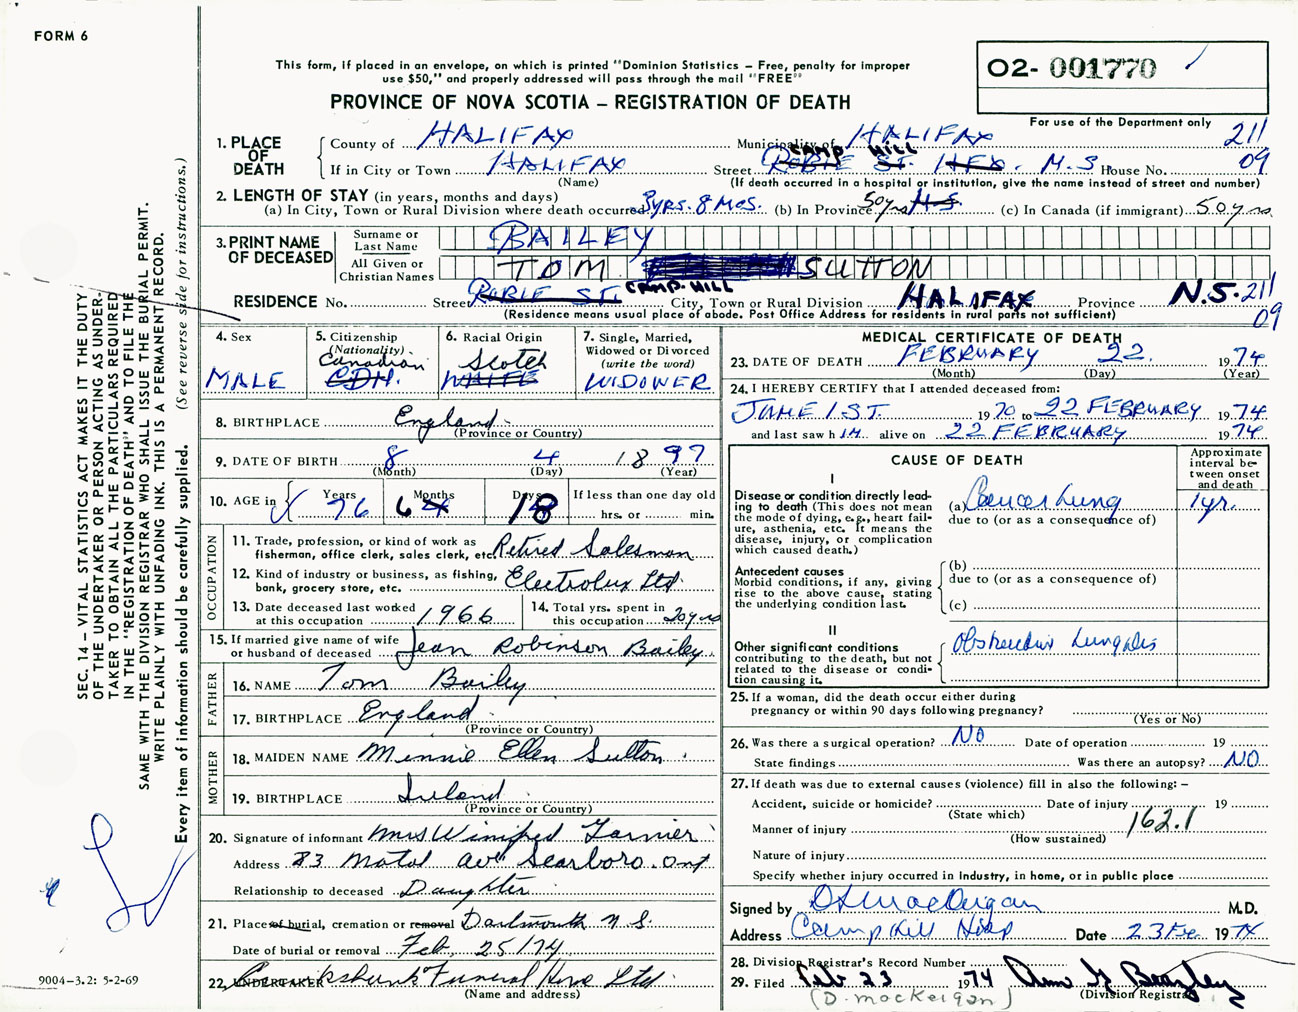 FORM 6
This form, if placed in an envelope, on which is printed "Dominion Statistics – Free, penalty for improper
use $50," and properly addressed will pass through the mail "FREE"
O2- 001770
PROVINCE OF NOVA SCOTIA – REGISTRATION OF DEATH
For use of the Department only
1. PLACE OF DEATH
County of HALIFAX Municipality of HALIFAX 211
If in City or Town HALIFAX Street ROBIE ST. HFX. CAMP HILL M.S House No. 09
(Name) (If death occurred in a hospital or institution, give the name instead of street and number)
2. LENGTH OF STAY (in years, months and days)
(a) In City, Town or Rural Division where death occurred 3yrs. 8 Mos. (b) In Province 50yrs N.S. (c) In Canada (if immigrant) 50yrs.
3. PRINT NAME OF DECEASED
Surname or Last Name BAILEY
All Given or Christian Names TOM SUTTON
RESIDENCE No. Street ROBIE ST. CAMP HILL City, Town or Rural Division HALIFAX Province N.S. 211
(Residence means usual place of abode. Post Office Address for residents in rural parts not sufficient) 09
4. Sex MALE
5. Citizenship (Nationality) Canadian CDN.
6. Racial Origin Scotch WHITE
7. Single, Married, Widowed or Divorced (write the word) WIDOWER
8. BIRTHPLACE England
(Province or Country)
9. DATE OF BIRTH 8 4 1897
(Month) (Day) (Year)
10. AGE in Years 76 Months 6 Days 18 If less than one day old
hrs. or min.
OCCUPATION
11. Trade, profession, or kind of work as
fisherman, office clerk, sales clerk, etc. Retired Salesman
12. Kind of industry or business, as fishing,
bank, grocery store, etc. Electrolux Ltd.
13. Date deceased last worked
at this occupation 1966
14. Total yrs. spent in
this occupation 20yrs
15. If married give name of wife
or husband of deceased Jean Robinson Bailey
FATHER
16. NAME Tom Bailey
17. BIRTHPLACE England
(Province or Country)
MOTHER
18. MAIDEN NAME Minnie Ellen Sutton
19. BIRTHPLACE Ireland
(Province or Country)
20. Signature of informant Mrs Winifred
Address Ave Scarboro. Ont
Relationship to deceased Daughter
21. Place of burial, cremation or removal Dartmouth N.S.
Date of burial or removal Feb. 25/74
22. UNDERTAKER Cruikshank Funeral Home Ltd
(Name and address)
MEDICAL CERTIFICATE OF DEATH
23. DATE OF DEATH FEBRUARY 22. 1974
(Month) (Day) (Year)
24. I HEREBY CERTIFY that I attended deceased from:
JUNE 1ST. 1970 to 22 FEBRUARY 1974
and last saw h IM alive on 22 FEBRUARY 1974
CAUSE OF DEATH
Approximate interval between onset and death
I
Disease or condition directly lead-
ing to death (This does not mean
the mode of dying, e.g., heart fail-
ure, asthenia, etc. It means the
disease, injury, or complication
which caused death.)
(a) Cancer Lung 1yr.
due to (or as a consequence of)
Antecedent causes
Morbid conditions, if any, giving
rise to the above cause, stating
the underlying condition last.
(b)
due to (or as a consequence of)
(c)
II
Other significant conditions
contributing to the death, but not
related to the disease or condi-
tion causing it.
Obstructive Lung Dis
25. If a woman, did the death occur either during
pregnancy or within 90 days following pregnancy?
(Yes or No)
26. Was there a surgical operation? NO Date of operation 19
State findings Was there an autopsy? NO
27. If death was due to external causes (violence) fill in also the following: –
Accident, suicide or homicide? Date of injury 19
(State which)
Manner of injury 162.1
(How sustained)
Nature of injury
Specify whether injury occurred in industry, in home, or in public place
Signed by M.D.
Address Camp Hill Hosp Date 23 Fe 1974
28. Division Registrar's Record Number
29. Filed Feb 23 1974
(Division Registrar)
SEC. 14 – VITAL STATISTICS ACT MAKES IT THE DUTY
OF THE UNDERTAKER OR PERSON ACTING AS UNDER-
TAKER TO OBTAIN ALL THE PARTICULARS REQUIRED
IN THE "REGISTRATION OF DEATH" AND TO FILE THE
SAME WITH THE DIVISION REGISTRAR WHO SHALL ISSUE THE BURIAL PERMIT.
WRITE PLAINLY WITH UNFADING INK. THIS IS A PERMANENT RECORD.
Every item of information should be carefully supplied. (See reverse side for instructions.)
9004–3.2: 5-2-69